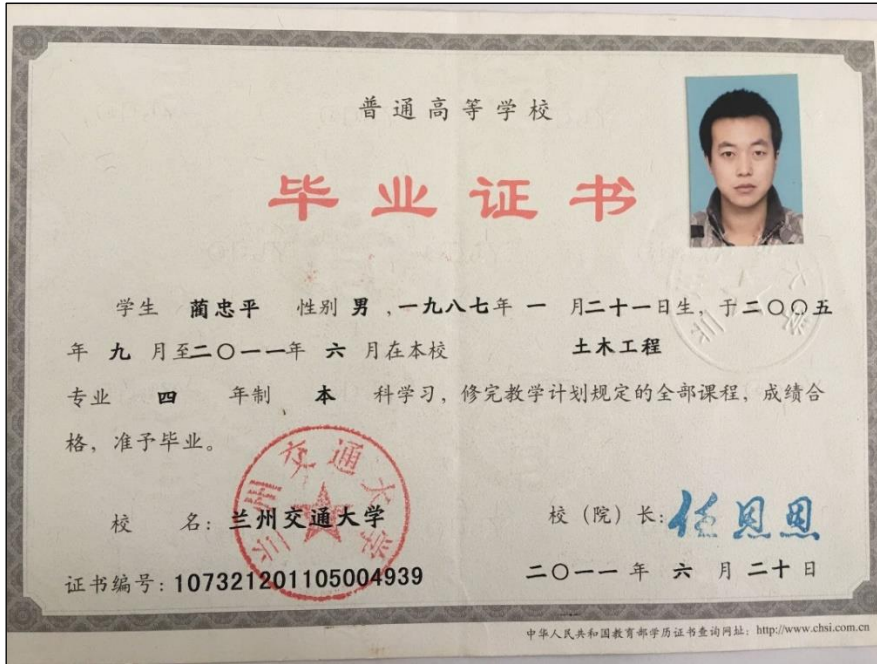 普通高等学校
毕业证书
学生 蔺忠平 性别 男 ，一九八七年 一 月二十一日生，于二〇〇五
年 九 月至二〇一一年 六 月在本校 土木工程
专业 四 年制 本 科学习，修完教学计划规定的全部课程，成绩合
格，准予毕业。
兰州交通大学
校 名：兰州交通大学
校（院）长：任恩恩
证书编号：107321201105004939
二〇一一 年 六 月 二十 日
中华人民共和国教育部学历证书查询网址：http://www.chsi.com.cn